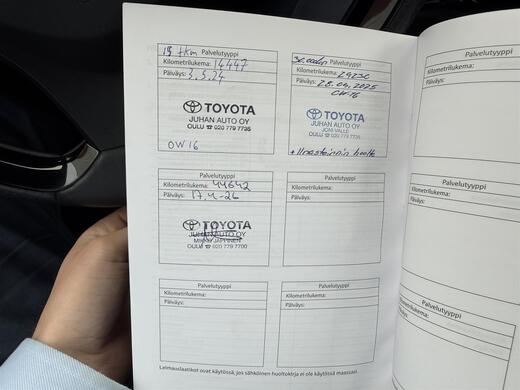 15 tkm Palvelutyyppi
Kilometrilukema: 14447
Päiväys: 3.5.24
TOYOTA
JUHAN AUTO OY
OULU ☎ 020 779 7735
OW16
Palvelutyyppi
Kilometrilukema: 29230
Päiväys: 28.04.2025
OW16
TOYOTA
JUHAN AUTO OY
JONI VALLE
OULU ☎ 020 779 7735
+ Ilmastoinnin huolto
Palvelutyyppi
Kilometrilukema: 44642
Päiväys: 17.4-26
TOYOTA
JUHAN AUTO OY
OULU ☎ 020 779 7700
Palvelutyyppi
Kilometrilukema:
Päiväys:
Palvelutyyppi
Kilometrilukema:
Päiväys:
Palvelutyyppi
Kilometrilukema:
Päiväys:
Leimauslaatikot ovat käytössä, jos sähköinen huoltokirja ei ole käytössä maassasi.
Palvelutyyppi
Kilometrilukema:
Päiväys:
Palvelutyyppi
Kilometrilukema:
Päiväys:
Palvelutyyppi
Kilometrilukema:
Päiväys: